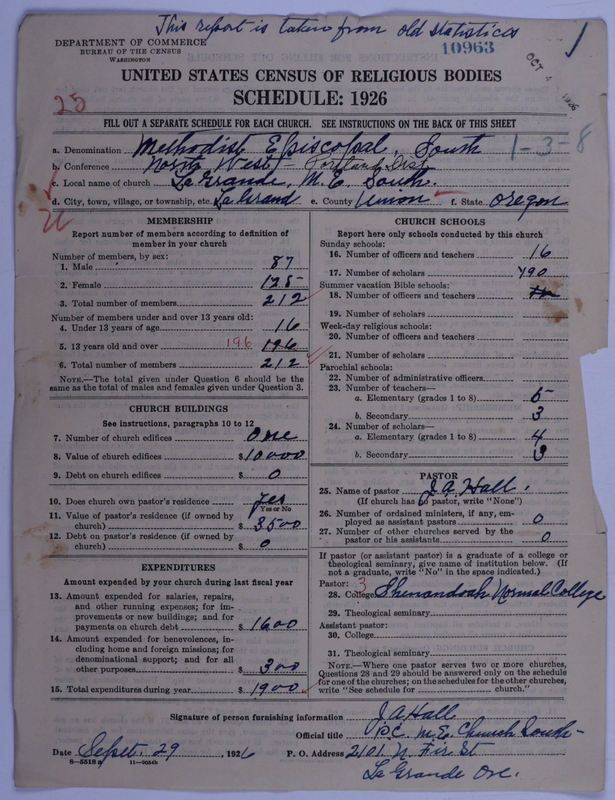 This report is taken from old statistics
DEPARTMENT OF COMMERCE
BUREAU OF THE CENSUS
WASHINGTON
10963
OCT 4 1926
UNITED STATES CENSUS OF RELIGIOUS BODIES
SCHEDULE: 1926
25
FILL OUT A SEPARATE SCHEDULE FOR EACH CHURCH. SEE INSTRUCTIONS ON THE BACK OF THIS SHEET
a. Denomination Methodist Episcopal, South
1-3-8
b. Conference North West - Portland Dist
c. Local name of church La Grande, M.E. South.
d. City, town, village, or township, etc. La Grand e. County Union f. State Oregon
MEMBERSHIP
Report number of members according to definition of
member in your church
Number of members, by sex:
1. Male 87
2. Female 125
3. Total number of members 212
Number of members under and over 13 years old:
4. Under 13 years of age 16
5. 13 years old and over 196 196
6. Total number of members 212
NOTE.—The total given under Question 6 should be the
same as the total of males and females given under Question 3.
CHURCH BUILDINGS
See instructions, paragraphs 10 to 12
7. Number of church edifices One
8. Value of church edifices $10000
9. Debt on church edifices $ 0
10. Does church own pastor's residence yes
Yes or No
11. Value of pastor's residence (if owned by
church) $3500
12. Debt on pastor's residence (if owned by
church) $ 0
EXPENDITURES
Amount expended by your church during last fiscal year
13. Amount expended for salaries, repairs,
and other running expenses; for im-
provements or new buildings; and for
payments on church debt $1600
14. Amount expended for benevolences, in-
cluding home and foreign missions; for
denominational support; and for all
other purposes $ 300
15. Total expenditures during year $1900
CHURCH SCHOOLS
Report here only schools conducted by this church
Sunday schools:
16. Number of officers and teachers 16
17. Number of scholars 190
Summer vacation Bible schools:
18. Number of officers and teachers
19. Number of scholars
Week-day religious schools:
20. Number of officers and teachers
21. Number of scholars
Parochial schools:
22. Number of administrative officers
23. Number of teachers—
a. Elementary (grades 1 to 8) 5
b. Secondary 3
24. Number of scholars—
a. Elementary (grades 1 to 8) 4
b. Secondary 3
PASTOR
25. Name of pastor J A Hall.
(If church has no pastor, write "None")
26. Number of ordained ministers, if any, em-
ployed as assistant pastors 0
27. Number of other churches served by the
pastor or his assistants 0
If pastor (or assistant pastor) is a graduate of a college or
theological seminary, give name of institution below. (If
not a graduate, write "No" in the space indicated.)
Pastor: 3
28. College Shenandoah Normal College
29. Theological seminary
Assistant pastor:
30. College
31. Theological seminary
NOTE.—Where one pastor serves two or more churches,
Questions 28 and 29 should be answered only on the schedule
for one of the churches; on the schedules for the other churches,
write "See schedule for church."
Signature of person furnishing information J A Hall
Official title P.C. M.E. Church South-
Date Sept. 29, 1926 P. O. Address 2101 N. Fir St
8-5518a 11-9054b
La Grande Ore.